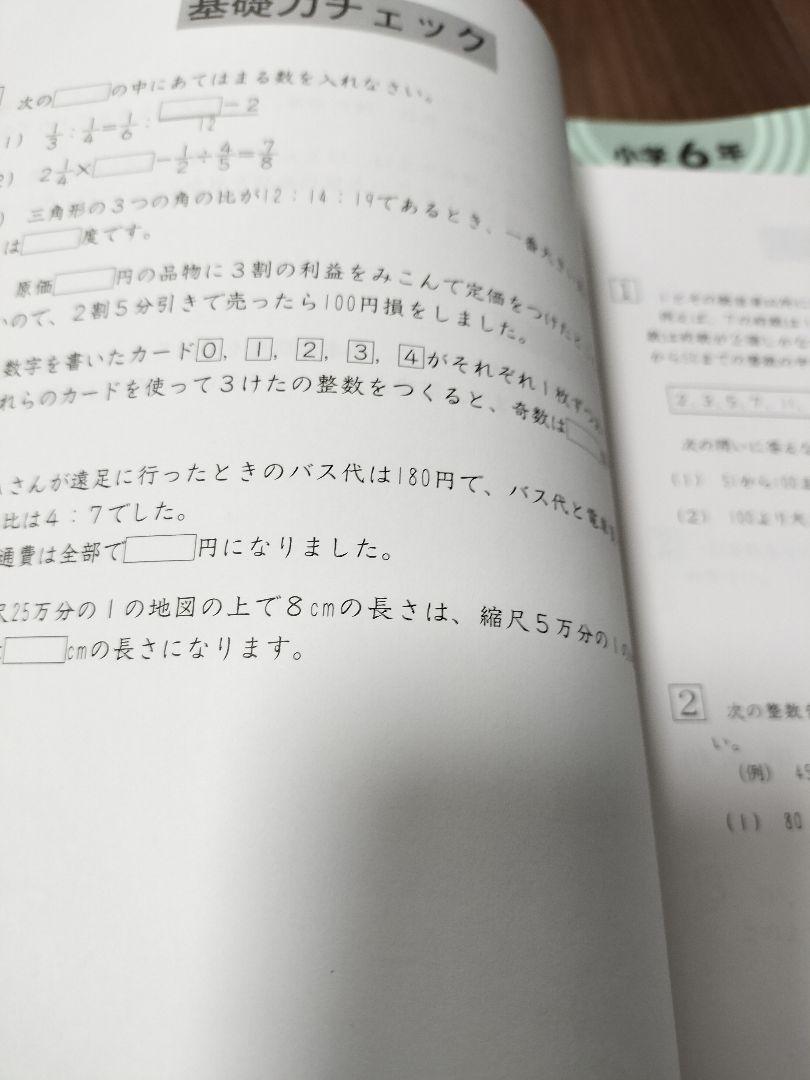 基礎力チェック
次の□の中にあてはまる数を入れなさい。
1) 1/3 : 1/4 = 1/6 : (□−2)/12
2) 2 1/4 × □ − 1/2 ÷ 4/5 = 7/8
) 三角形の3つの角の比が12:14:19であるとき、一番大き
は□度です。
原価□円の品物に3割の利益をみこんで定価をつけた
ので、2割5分引きで売ったら100円損をしました。
数字を書いたカード0, 1, 2, 3, 4がそれぞれ1枚ず
れらのカードを使って3けたの整数をつくると、奇数は□
さんが遠足に行ったときのバス代は180円で、バス代と電
比は4:7でした。
通費は全部で□円になりました。
尺25万分の1の地図の上で8cmの長さは、縮尺5万分の1の
□cmの長さになります。
小学6年
1
2, 3, 5, 7, 11,
次の問いに答えな
(1) 51から100ま
(2) 100より大
2 次の整数
い。
(例) 45
(1) 80